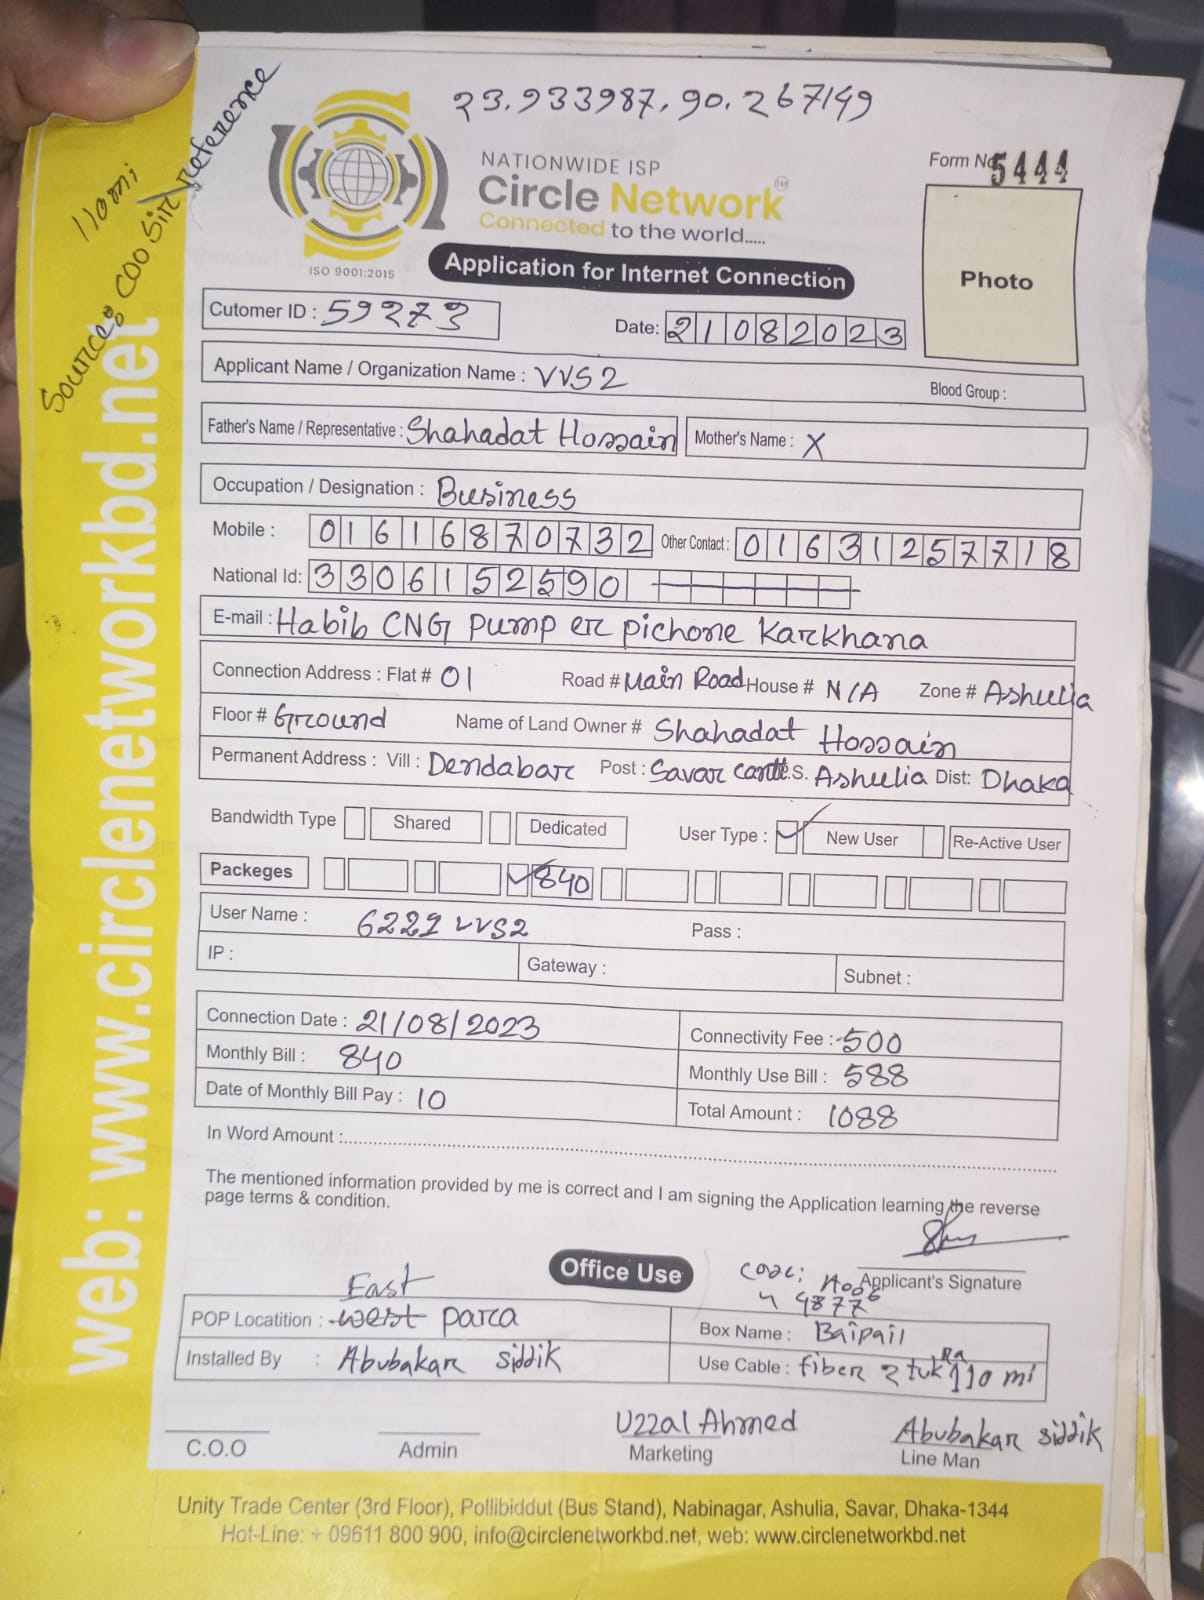 23.933987, 90.267149
110mi
Source: COO Sir reference
NATIONWIDE ISP
Circle Network™
Connected to the world.....
ISO 9001:2015
Application for Internet Connection
Form No 5444
Photo
Cutomer ID : 59273
Date: 21082023
Applicant Name / Organization Name : VVS2
Blood Group :
Father's Name / Representative : Shahadat Hossain Mother's Name : X
Occupation / Designation : Business
Mobile : 01616870732 Other Contact : 01631257718
National Id: 3306152590
E-mail : Habib CNG pump er pichone Karkhana
Connection Address : Flat # 01 Road # Main Road House # N/A Zone # Ashulia
Floor # Ground Name of Land Owner # Shahadat Hossain
Permanent Address : Vill : Dendabar Post : Savar cantt P.S. Ashulia Dist: Dhaka
Bandwidth Type Shared Dedicated User Type : ✓ New User Re-Active User
Packeges ✓ 840
User Name : 6222 VVS2 Pass :
IP : Gateway : Subnet :
Connection Date : 21/08/2023 Connectivity Fee : 500
Monthly Bill : 840 Monthly Use Bill : 588
Date of Monthly Bill Pay : 10 Total Amount : 1088
In Word Amount :
The mentioned information provided by me is correct and I am signing the Application learning the reverse
page terms & condition.
Applicant's Signature
Office Use
East
POP Locatition : west para Box Name : Baipail
Installed By : Abubakar siddik Use Cable : fiber 2 tukra 110 mi
Uzzal Ahmed Abubakar siddik
C.O.O Admin Marketing Line Man
Unity Trade Center (3rd Floor), Pollibiddut (Bus Stand), Nabinagar, Ashulia, Savar, Dhaka-1344
Hot-Line: + 09611 800 900, info@circlenetworkbd.net, web: www.circlenetworkbd.net
web: www.circlenetworkbd.net